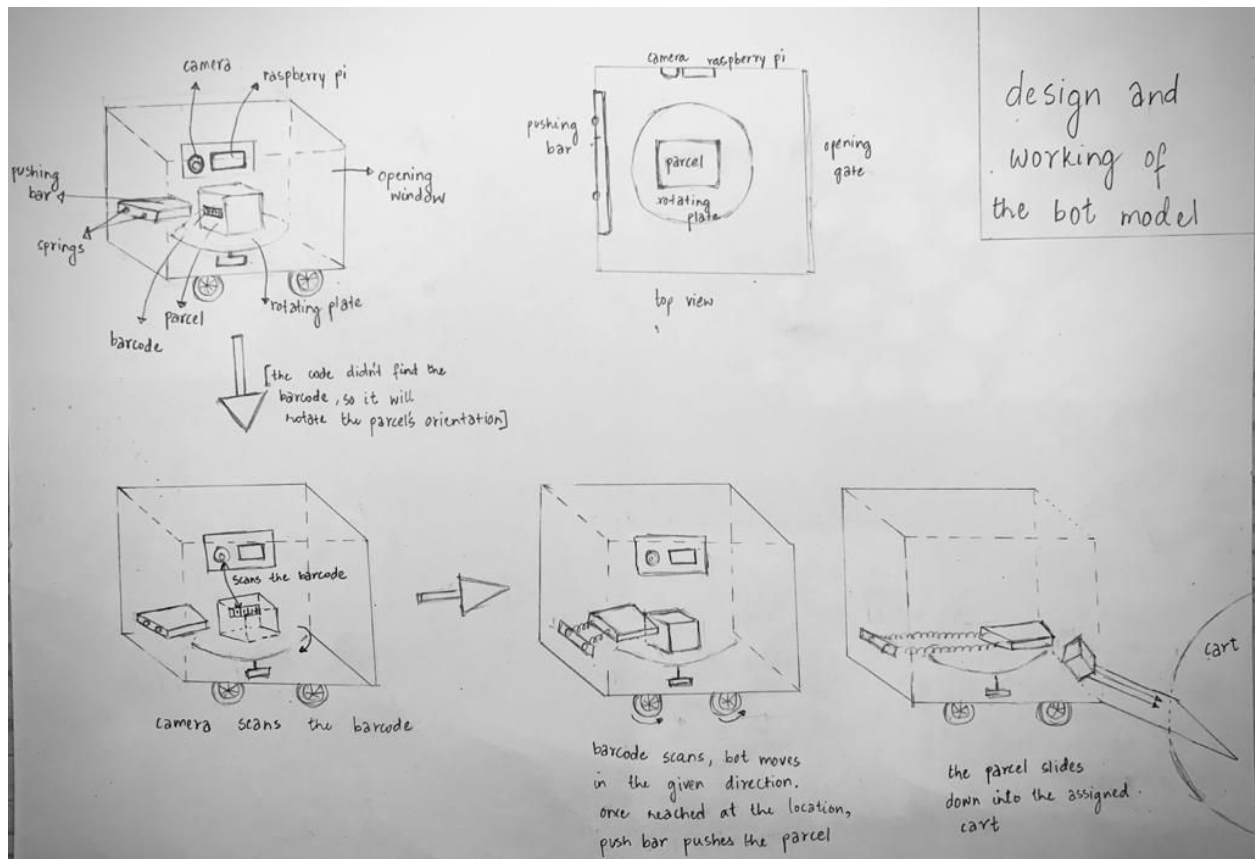 camera
raspberry pi
pushing
bar
springs
opening
window
rotating plate
parcel
barcode
camera raspberry pi
pushing
bar
parcel
rotating
plate
opening
gate
top view
design and
working of
the bot model
[the code didn't find the
barcode, so it will
rotate the parcel's orientation]
scans the barcode
camera scans the barcode
barcode scans, bot moves
in the given direction.
once reached at the location,
push bar pushes the parcel
cart
the parcel slides
down into the assigned
cart